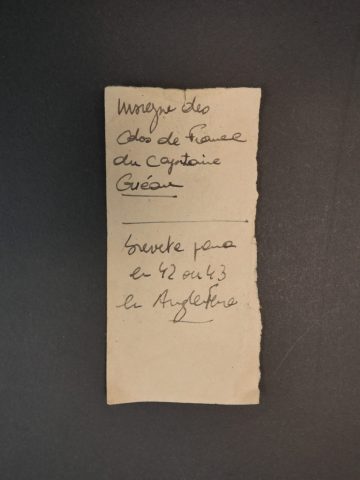 Insigne des
Cdos de France
du Capitaine
Guéau
breveté para
en 42 ou 43
en Angleterre